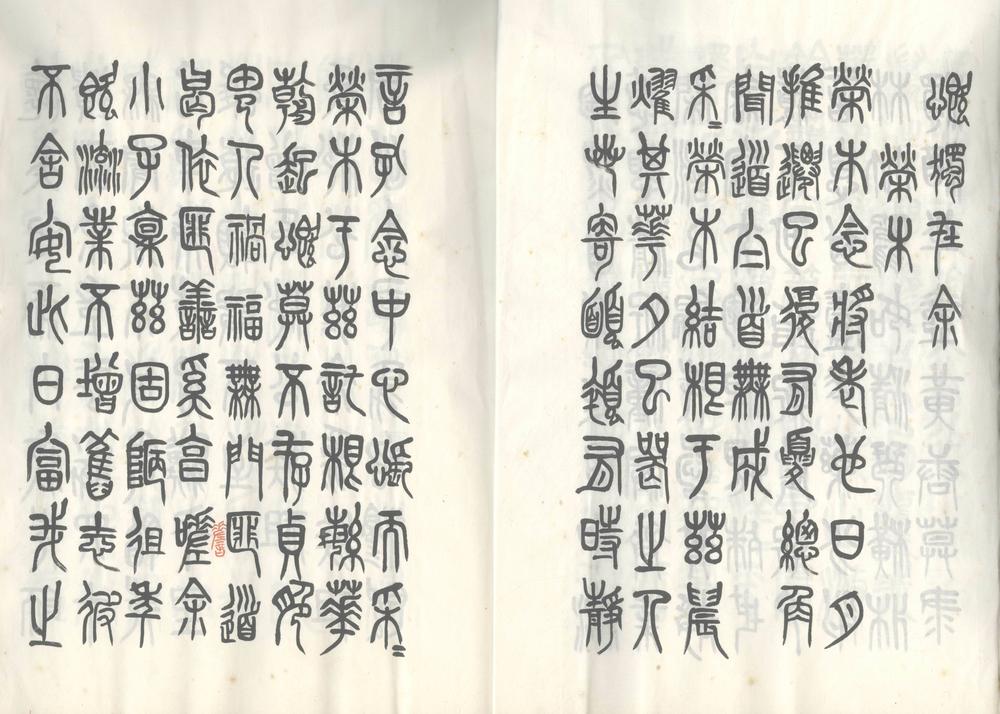 慨獨在余
榮木
榮木念將老也日月
推遷已復有夏總角
聞道白首無成
采〻榮木結根于茲晨
燿其華夕已喪之人
生若寄顦顇有時靜
言孔念中心悵而采〻
榮木于茲託根繁華
朝起慨莫不存貞脆
由人禍福無門匪道
曷依匪善奚敦嗟余
小子稟茲固陋徂年
既流業不增舊志彼
不舍安此日富我之